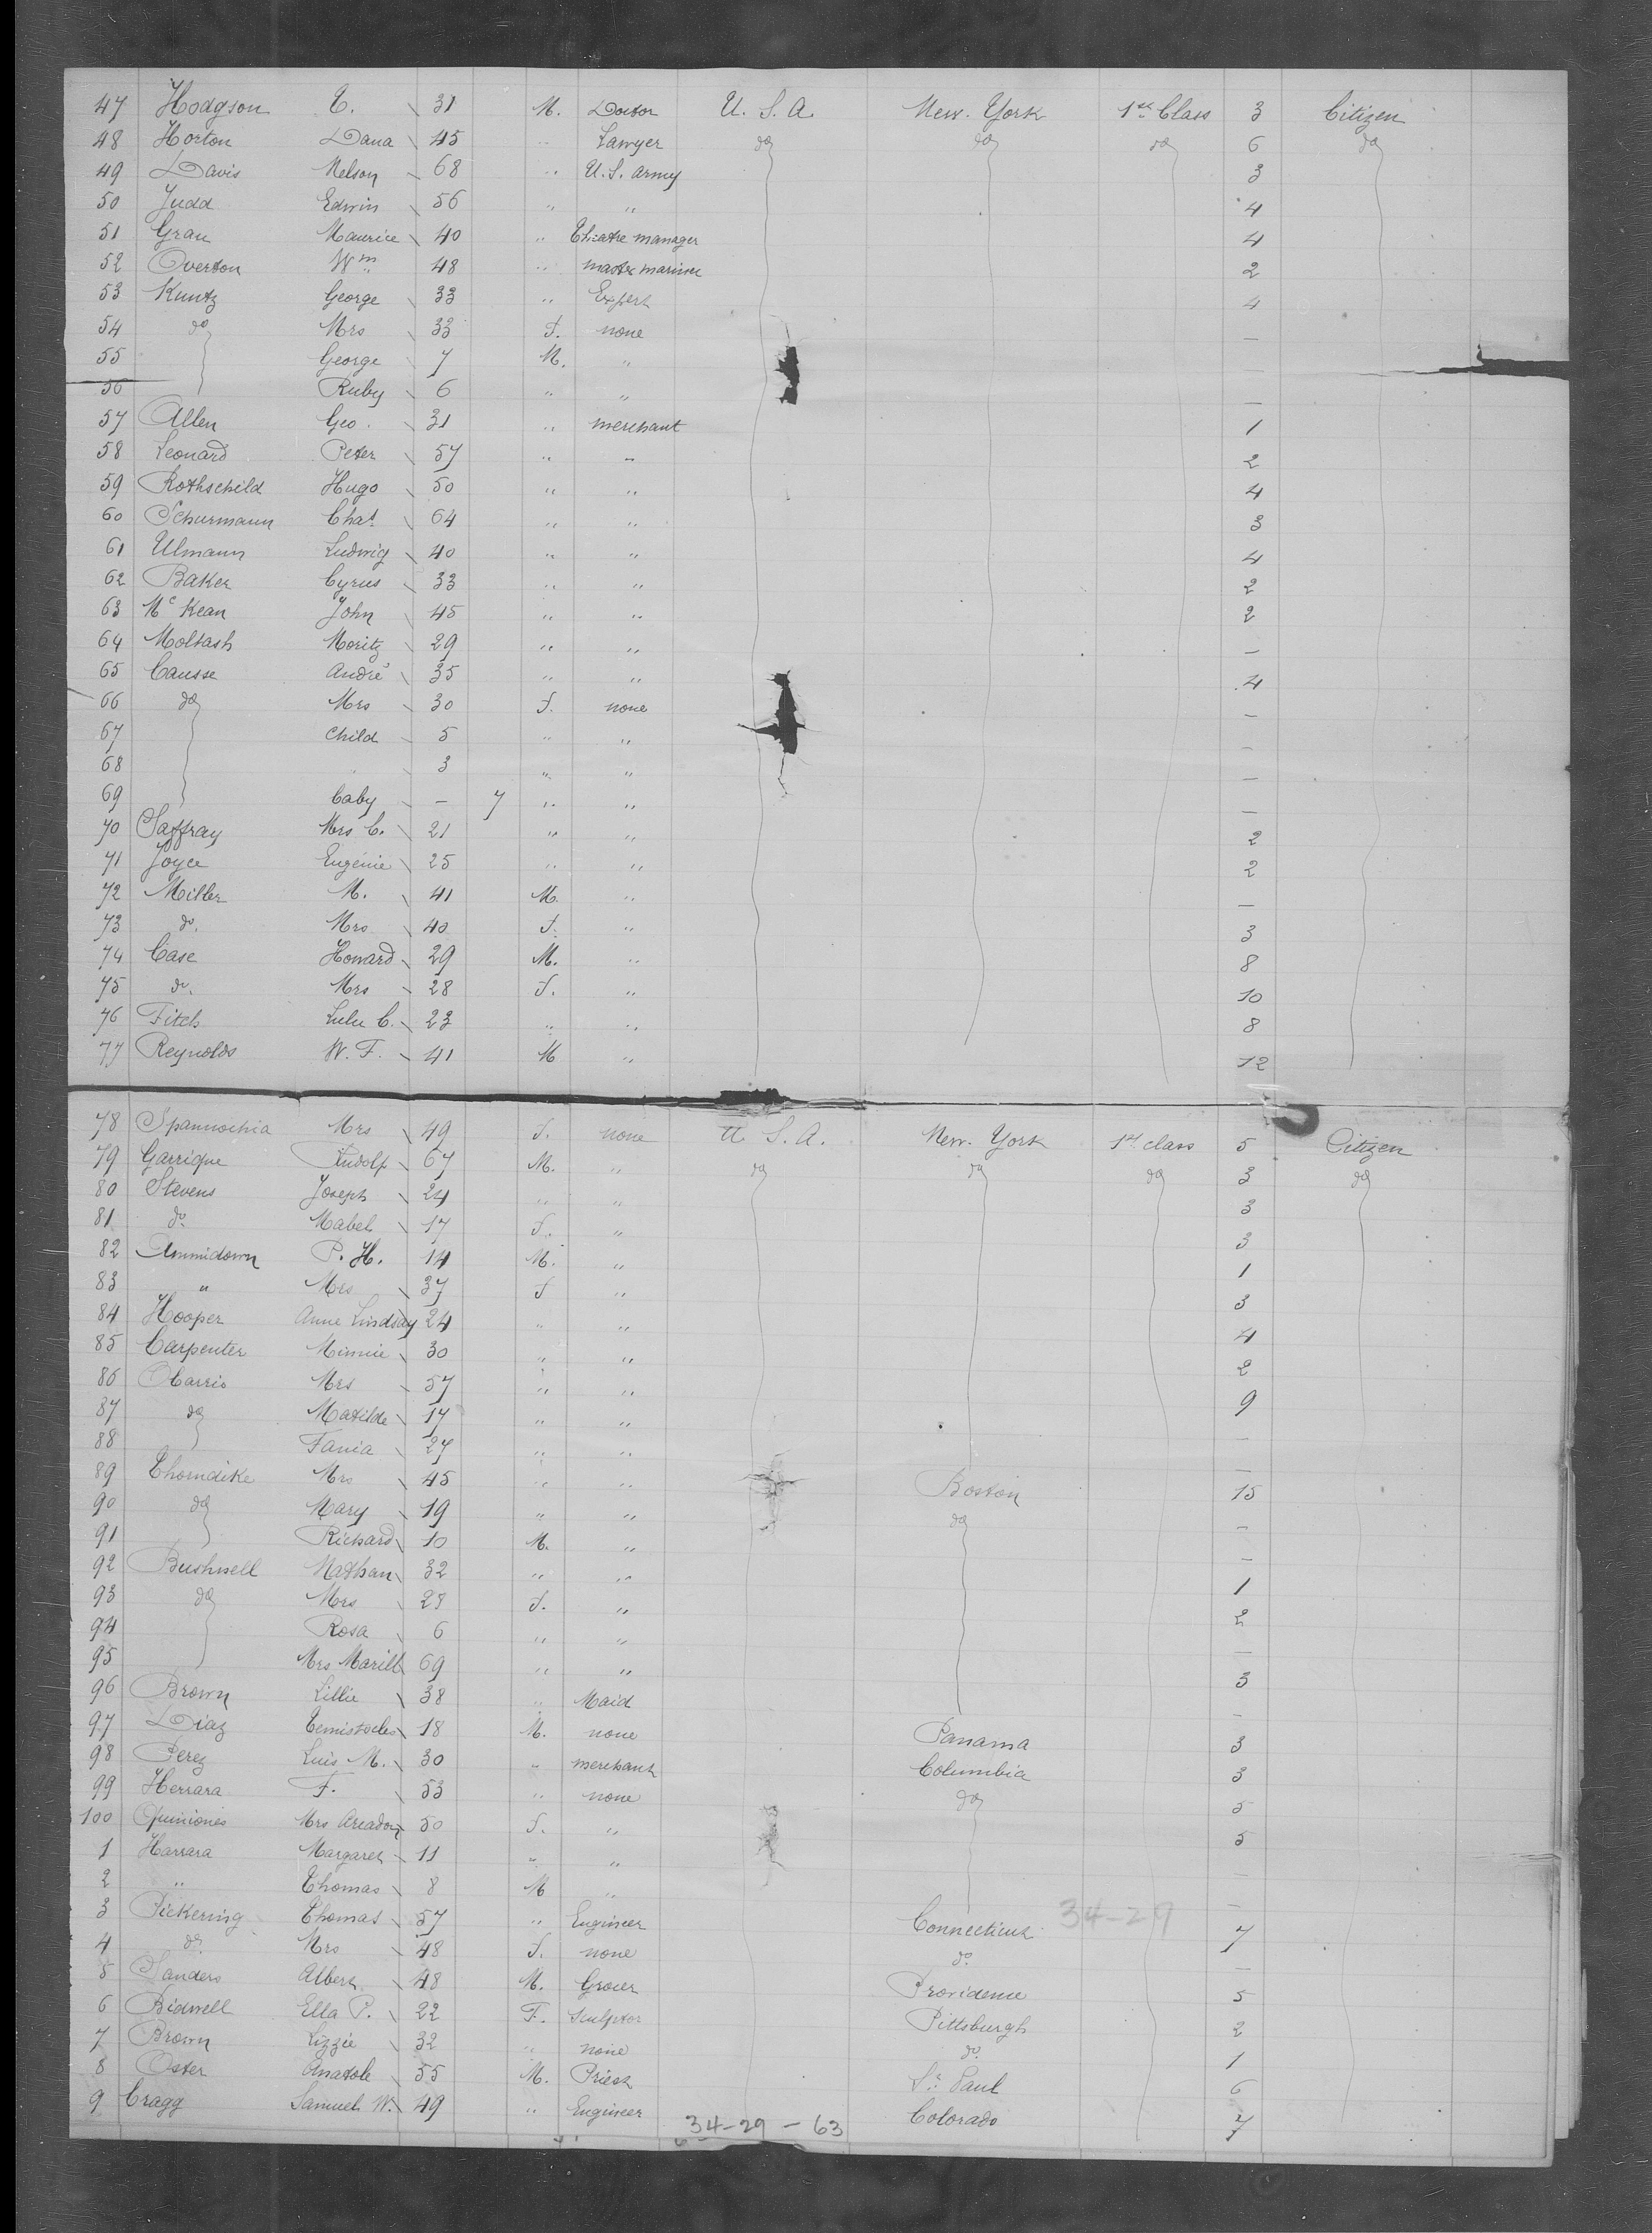 47 Hodgson C. 31 M. Doctor U. S. A. New. York 1st Class 3 Citizen
48 Horton Dana 45 " Lawyer do do do 6 do
49 Davis Nelson 68 " U. S. army 3
50 Judd Edwin 56 " " 4
51 Grau Maurice 40 " Theatre manager 4
52 Overton Wm 48 " master mariner 2
53 Kuntz George 33 " Expert 4
54 do Mrs 33 F. none —
55 George 7 M. " —
56 Ruby 6 " " —
57 Allen Geo. 31 " merchant 1
58 Leonard Peter 57 " " 2
59 Rothschild Hugo 50 " " 4
60 Schurmann Chas 64 " " 3
61 Ulmann Ludwig 40 " " 4
62 Baker Cyrus 33 " " 2
63 Mc Kean John 45 " " 2
64 Moltash Moritz 29 " " —
65 Causse André 35 " " 4
66 do Mrs 30 F. none —
67 Child 5 " " —
68 " 3 " " —
69 baby — 7 " " —
70 Saffray Mrs C. 21 " " 2
71 Joyce Eugénie 25 " " 2
72 Miller M. 41 M. " —
73 do. Mrs 40 F. " 3
74 Case Howard 29 M. " 8
75 do. Mrs 28 F. " 10
76 Fitch Lulu C. 23 " " 8
77 Reynolds W. F. 41 M " 12
78 Spannochia Mrs 49 F. none U. S. A. New. York 1st class 5 Citizen
79 Garrique Rudolf 67 M. " do do do 3 do
80 Stevens Joseph 24 " " 3
81 do Mabel 17 F. " 3
82 Ammidown P. H. 14 M. " 1
83 " Mrs 37 F " 3
84 Hooper Anne Lindsay 24 " " 4
85 Carpenter Minnie 30 " " 2
86 Obarrio Mrs 57 " " 9
87 do Matilde 17 " " —
88 Fania 27 " " —
89 Thorndike Mrs 45 " " Boston 15
90 do Mary 19 " " do —
91 Richard 10 M. " —
92 Bushnell Nathan 32 " " 1
93 do Mrs 28 F. " 2
94 Rosa 6 " " —
95 Mrs Marill 69 " " 3
96 Brown Lillie 38 " Maid —
97 Diaz Temistocles 18 M. none Panama 3
98 Perez Luis M. 30 " merchant Columbia 3
99 Herrara F. 53 " none do 5
100 Quiniones Mrs 50 F. " 5
1 Harrara Margaret 11 " " —
2 " Thomas 8 M " —
3 Pickering Thomas 57 " Engineer Connecticut 34-29 7
4 do Mrs 48 F. none do —
5 Sanders Albert 48 M. Grocer Providence 5
6 Bidwell Ella P. 22 F. Sculptor Pittsburgh 2
7 Brown Lizzie 32 " none do 1
8 Oster Anatole 55 M. Priest St Paul 6
9 Cragg Samuel W. 49 " Engineer Colorado 7
34-29-63